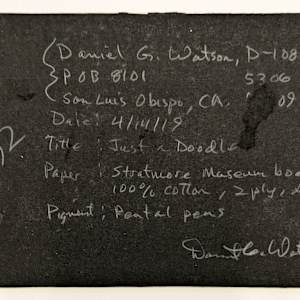 Daniel G. Watson, D-108
POB 8101 5306
San Luis Obispo, CA. 09
Date: 4/14/19
Title: Just a Doodle
Paper: Stratmore Museum boa
100% cotton, 2 ply,
Pigment: Pental pens